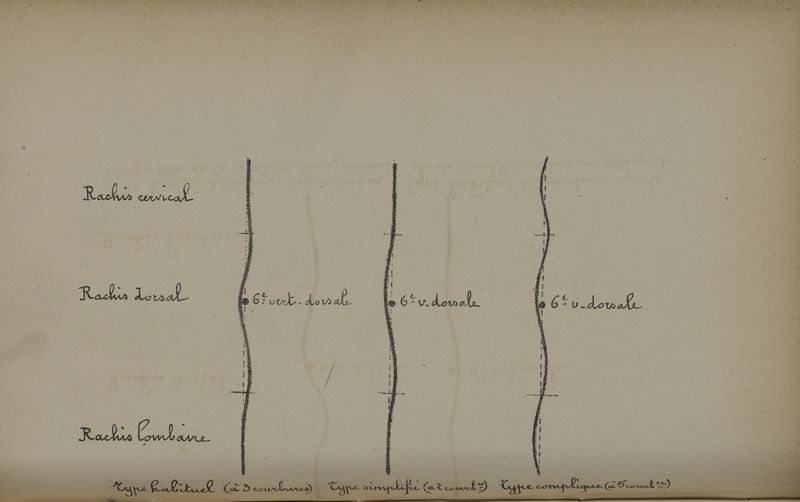 Rachis cervical
Rachis dorsal
6e vert. dorsale
6e v. dorsale
6e v. dorsale
Rachis lombaire
Type habituel (à 3 courbures)
Type simplifié (à 2 courbres)
Type compliqué (à 5 courbres)